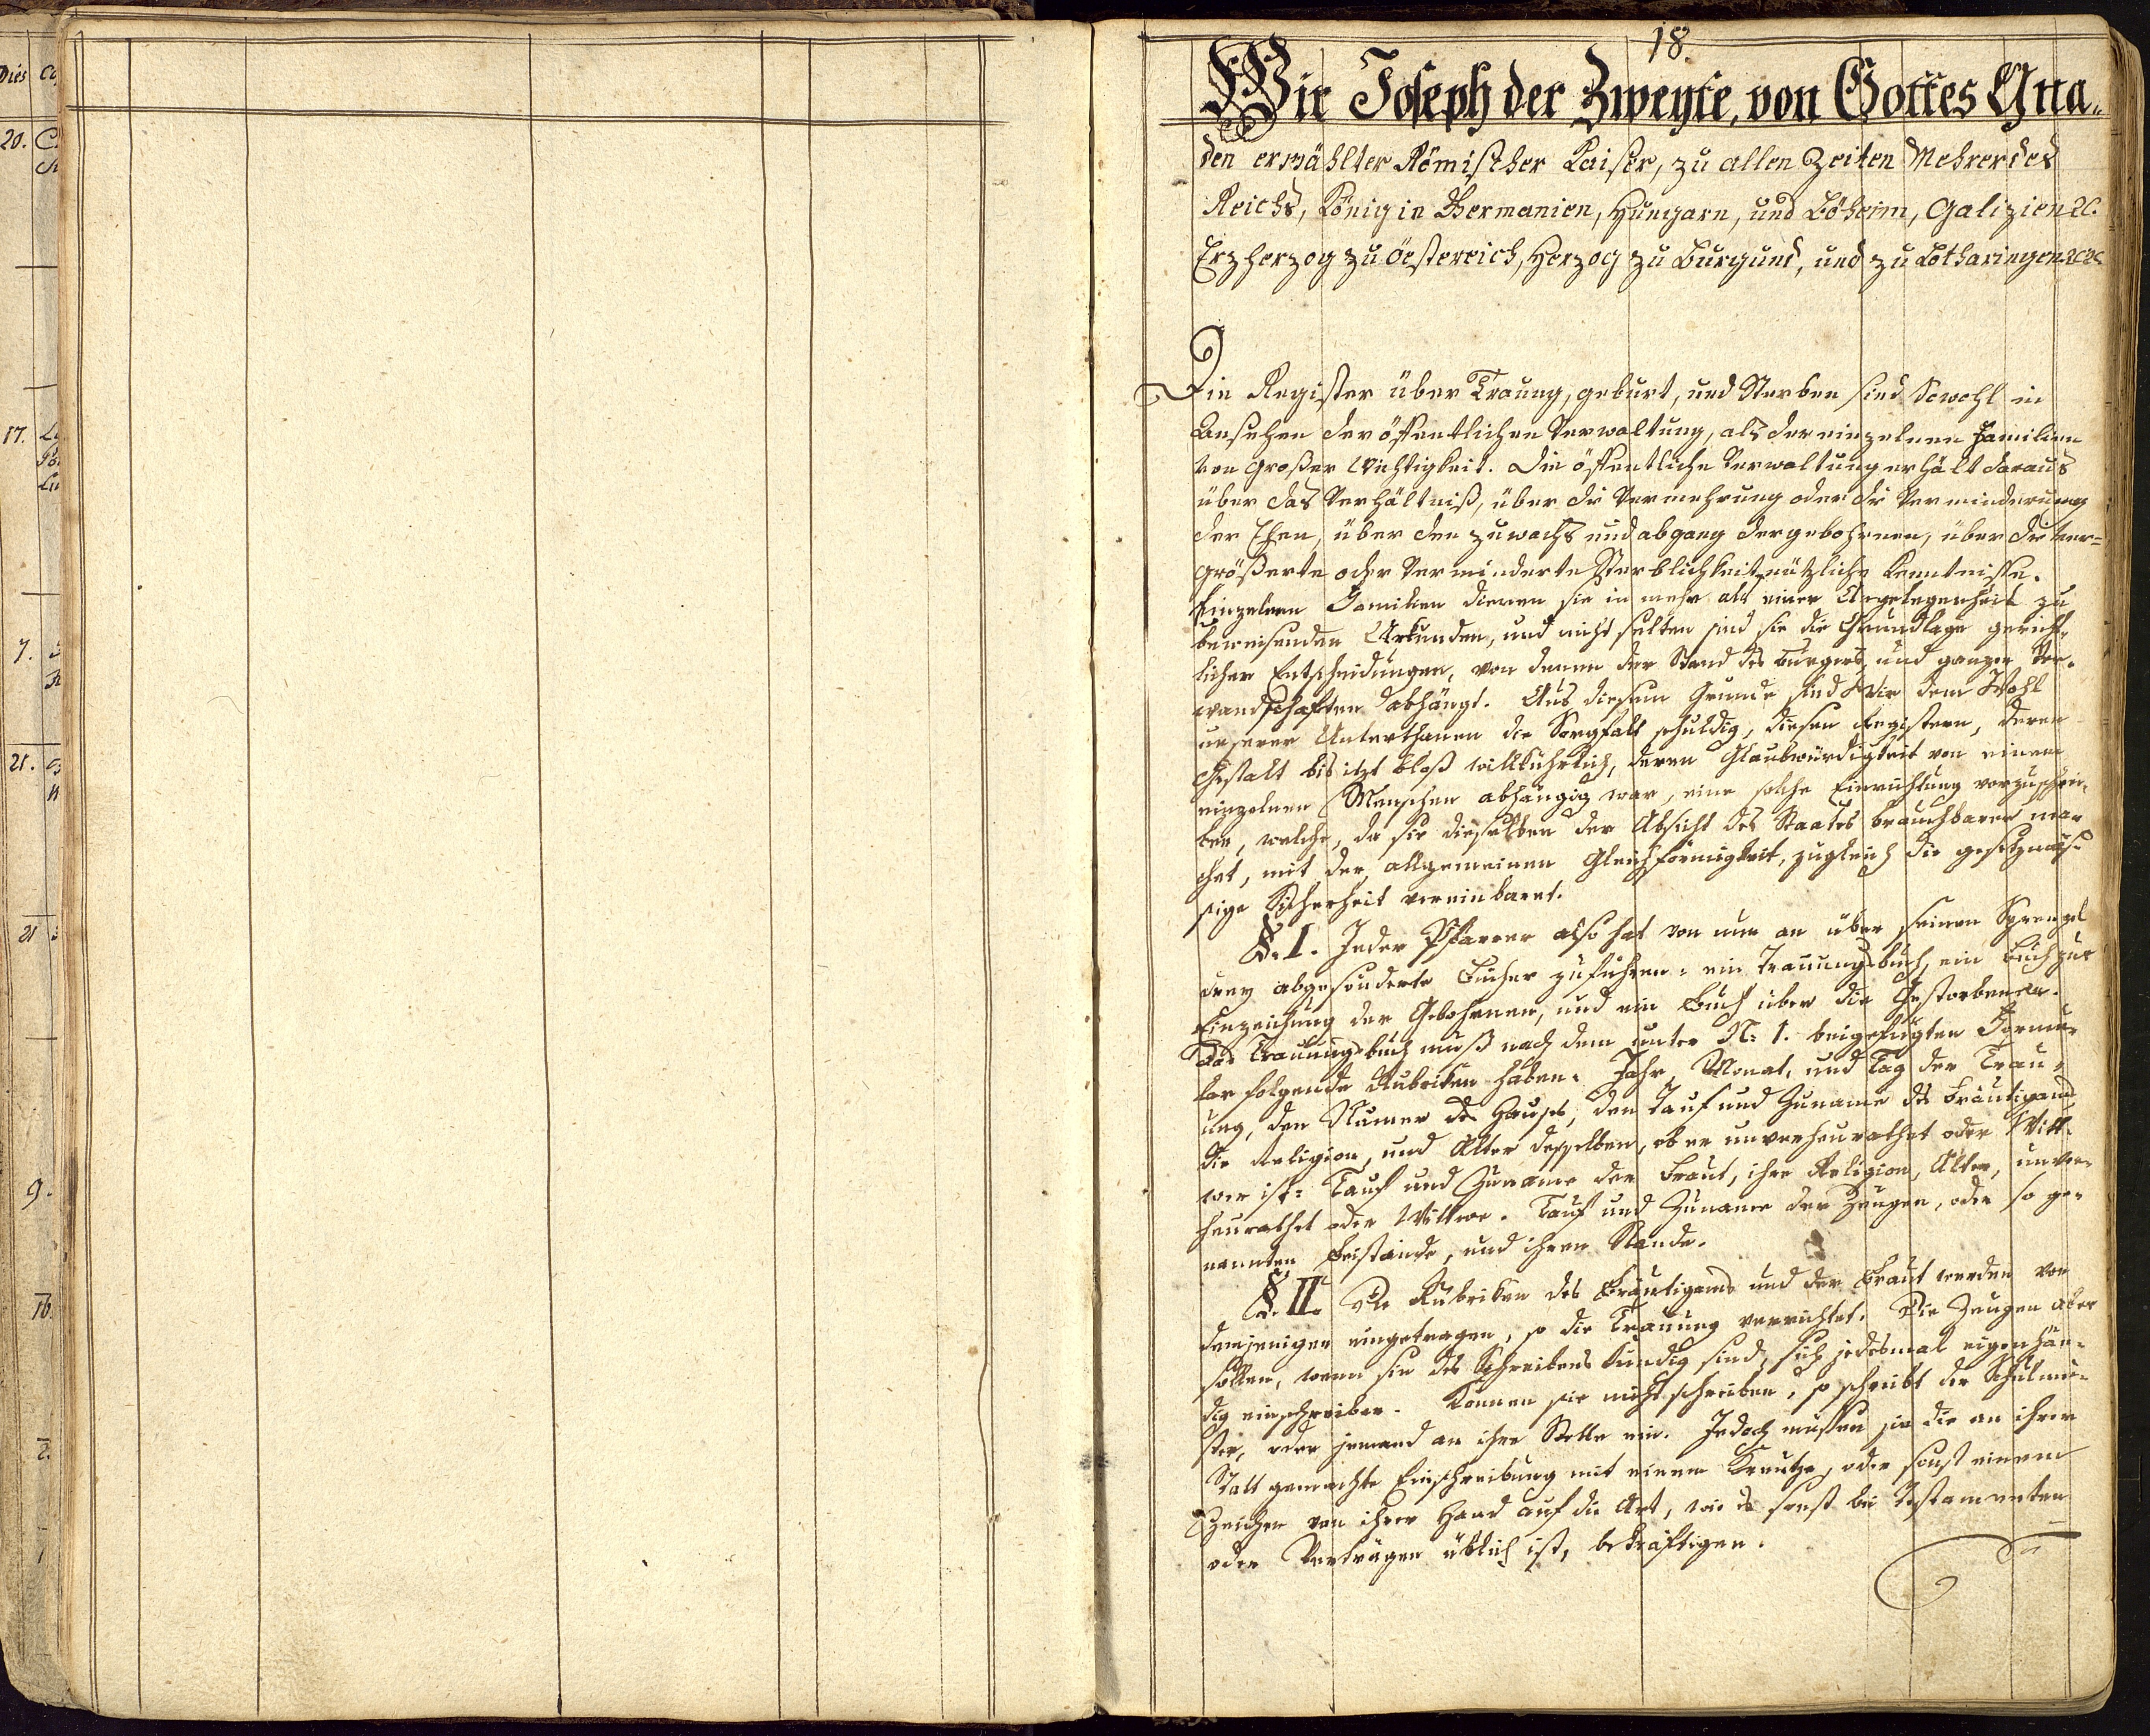 Dies
20.
17.
7.
21.
21
9.
16.
2.
18.
Wir Joseph der Zweyte, von Gottes Gna„
den erwählter Römischer Kaiser, zu allen Zeiten Mehrer des
Reichs, König in Germanien, Hungarn, und Böheim, Galizien ꝛc.
Erzherzog zu Öesterreich, Herzog zu Burgund, und zu Lotharingen ꝛc ꝛc
Die Register über Trauung, geburt, und Sterben sind Sowohl in
Ansehen der öffentlichen Verwaltung, als der einzelnen Familien
von großer Wichtigkeit. Die öffentliche Verwaltung erhält daraus
über das Verhältniß, über die Vermehrung oder die Verminderung
der Ehen, über den zuwachs und abgang der gebohrnen, über die ver=
größerte oder Verminderte Sterblichkeit nützliche Kenntnisse.
Einzelnen Familien dienen sie in mehr als einer Angelegenheit zu
beweisenden Urkunden, und nicht selten sind sie die Grundlage gericht-
licher Entscheidungen, von denen der Stand des bürgers, und ganzer Ver-
wandschaften abhängt. Aus diesem Grunde sind Wir dem Wohl
unserer Unterthanen die Sorgfalt schuldig, diesen Registern, deren
Gestalt bis itzt bloß willkührlich, deren Glaubwürdigkeit von einem
einzelnen Menschen abhängig war, eine solche Einrichtung vorzuschrei-
ben, welche, da sie dieselben der Absicht des Staates brauchbarer ma-
chet, mit der allgemeinen Gleichförmigkeit, zugleich die gesetzmäs-
sige Sicherheit vereinbaret.
§. I. Jeder Pfarrer also hat von nun an über seinen Sprengel
drey abgesonderte Bücher zuführen: ein Trauungsbuch, ein Buch zur
Einzeichnung der Gebohrnen, und ein Buch über die Gestorbenen.
Das Trauungsbuch muß nach dem unter N: 1. beigefügten Formu-
lar folgende Rubriken haben. Jahr, Monat, und Tag der Trau-
ung, den Numer des Hauses, den Tauf und Zuname des Bräutigams,
die Religion, und Alter desselben, ob er unverheurathet oder Witt-
wer ist: Tauf und Zuname der Braut, ihre Religion, Alter, unver-
heurathet oder Wittwe. Tauf und Zuname der Zeugen, oder so ge-
nannten Beistände, und ihren Stande.
§. II. Die Rubriken des Bräutigams und der Braut werden von
demjenigen eingetragen, so die Trauung verrichtet. Die Zeugen aber
sollen, wenn sie des Schreibens kundig sind, sich jedesmal eigenhän-
dig einschreiben. Können sie nicht schreiben, so schreibt der Schulmei-
ster, oder jemand an ihre Stelle ein. Jedoch müssen sie die an ihrer
Statt gemachte Einschreibung mit einem Kreutze, oder sonst einem
Zeichen von ihrer Hand auf die Art, wie es sonst bei Testamenten
oder Verträgen üblich ist, bekräftigen.